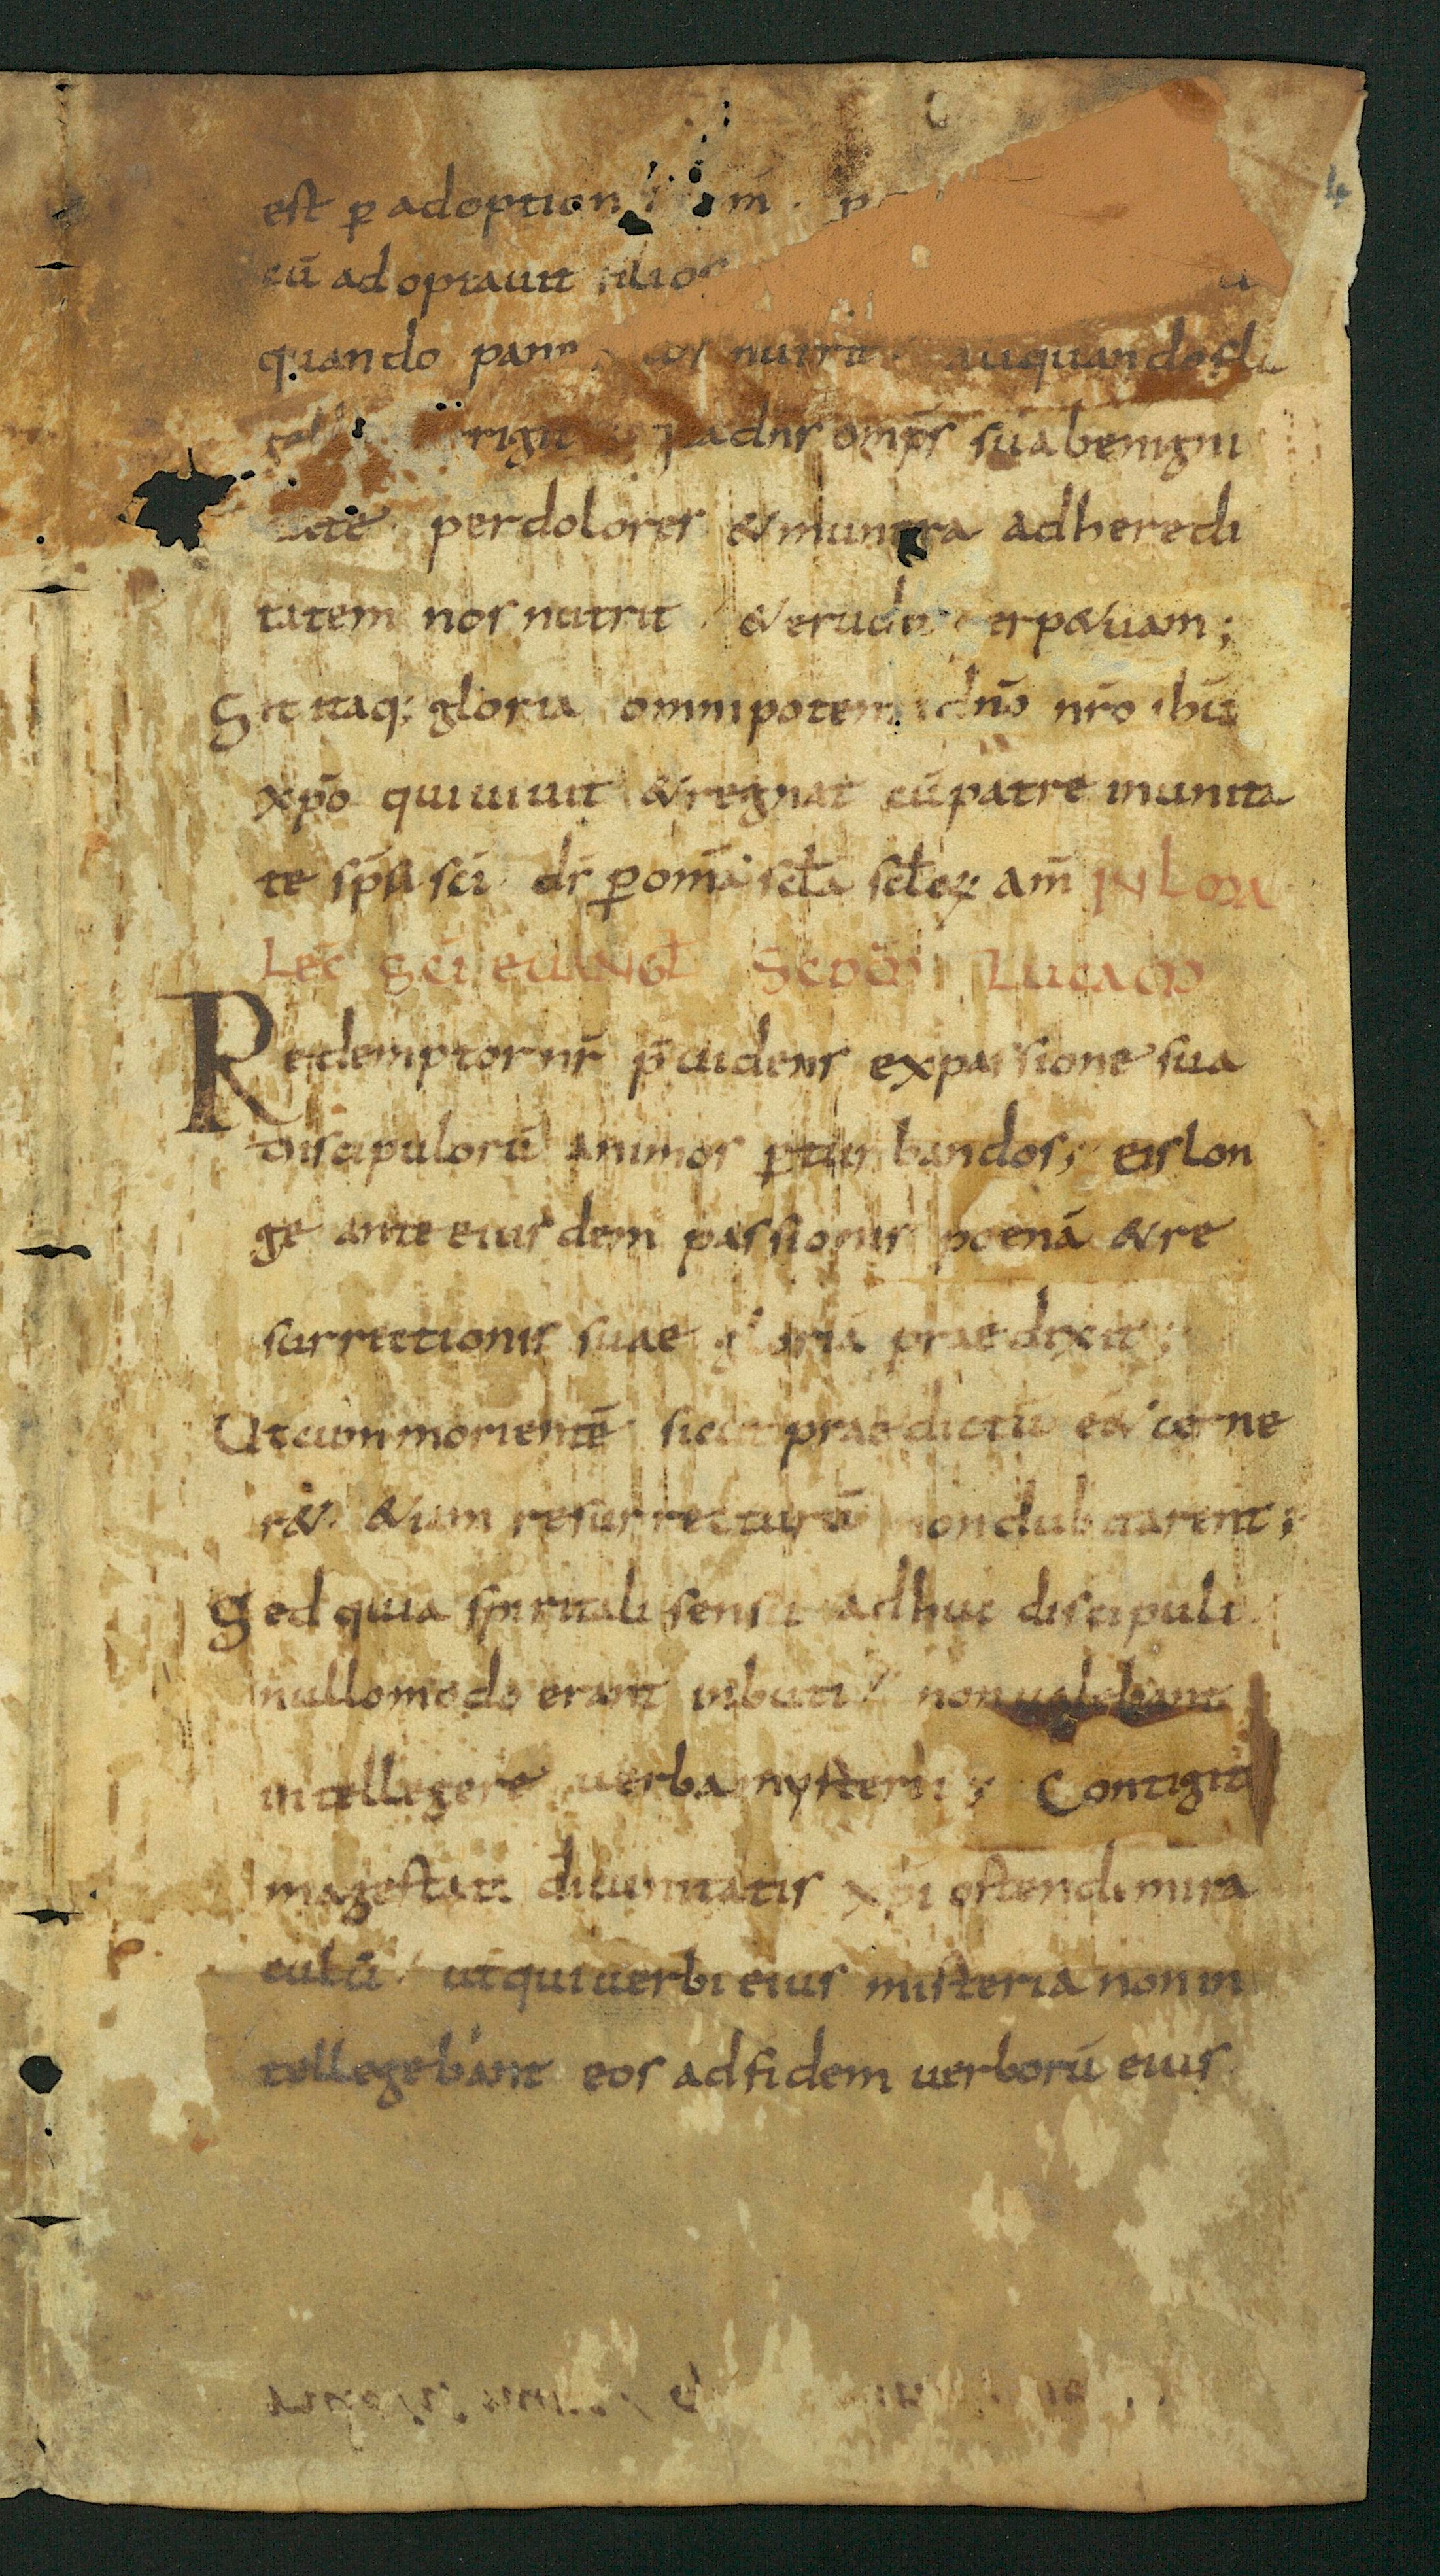 est ꝑ adoption
cū adoptauit filios
quando nutrit quando
dn̄s om̄ps sua benigni
tate perdolores &munera adheredi
tatem nos nutrit &erudit erp&uam;
Sit itaq; gloria omnipotenti dn̄o nr̄o ihū
xp̄o qui uiuit &regnat cū patre inunita
te sp̄u sc̄i ds̄ ꝑ om̄a scl̄a scl̄oꝝ am̄ IN L
Lec̄ Sc̄i euangl̄ Scdm̄ Lucam
Redemptor nr̄ p̄uidens expassione sua
discipulorū animos ꝑturbandos; eis lon
ge ante eiusdem passionis poenā &re
surrectionis suae gloriā praedixit;
Ut cum morientē sicut praedictū e& cerne
r&. &iam resurrecturū non dubitarent;
Sed quia spiritali sensu adhuc discipuli
nullomodo erant inbuti non ualebant
intellegere uerba mysterii; Contigit
magestati diuinitatis xp̄i ostendi mira
culū ut qui uerbi eius misteria non in
tellegebant eos adfidem uerborū eius